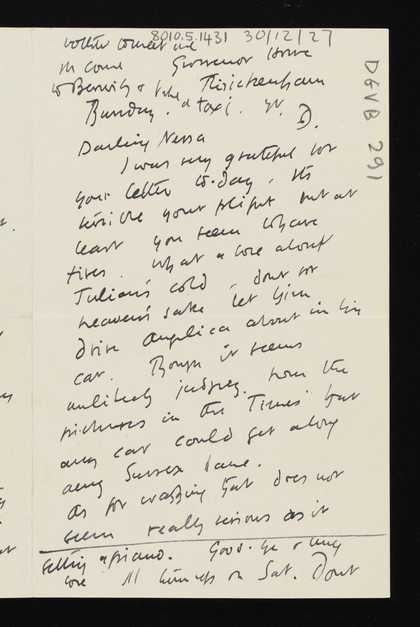 8010.5.1431 30/12/27
DGVB 291
bother to meet me
come Grosvenor House
to Berwick & take Twickenham
Bunday. a taxi. yr. D.
Darling Nessa
I was very grateful for
your letter to-day. Its
your plight but at
least you seem to have
fires. What a bore about
Julian's cold, dont for
heaven's sake let him
drive Angelica about in his
car. Though it seems
unlikely judging from the
pictures in the Times that
any car could get along
any Sussex lane.
As for washing that does not
seem really serious as it
getting a piano. Good-bye & very
love on Sat. Dont